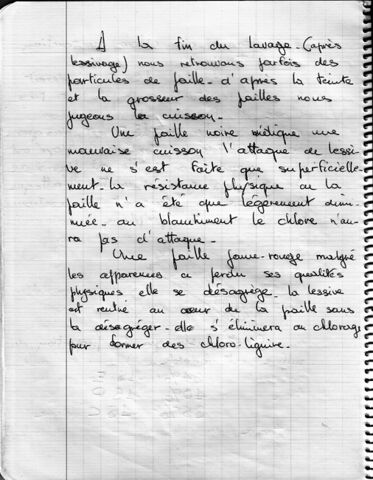 A la fin du lavage - (après
lessivage) nous retrouvons parfois des
particules de paille - d'après la teinte
et la grosseur des pailles nous
jugeons la cuisson -
Une paille noire indique une
mauvaise cuisson l'attaque de lessi-
ve ne s'est faite que superficielle-
ment - la résistance physique ou la
paille n'a été que légèrement dimi-
nuée - au blanchiment le chlore n'au-
ra pas d'attaque -
Une paille jaune-rouge malgré
les apparences a perdu ses qualités
physiques elle se désagrège - la lessive
est rentré au cœur de la paille sans
la désagréger - elle s'éliminera au chlorage
pour donner des chloro-lignine -